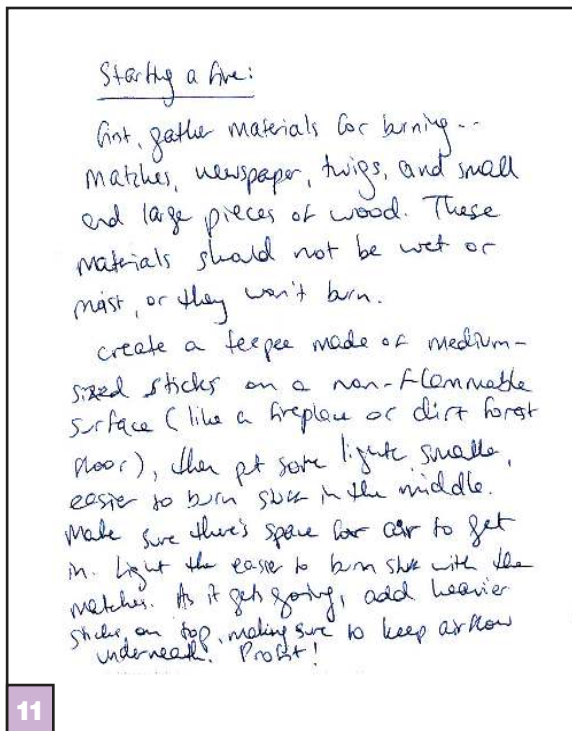 Starting a fire:
first, gather materials for burning--
matches, newspaper, twigs, and small
and large pieces of wood. These
materials should not be wet or
moist, or they won't burn.
create a teepee made of medium-
sized sticks on a non-flammable
surface (like a fireplace or dirt forest
floor), then put some lighter, smaller,
easier to burn stuff in the middle.
Make sure there's space for air to get
in. Light the easier to burn stuff with the
matches. As it gets going, add heavier
sticks on top, making sure to keep airflow
underneath. Profit!
11